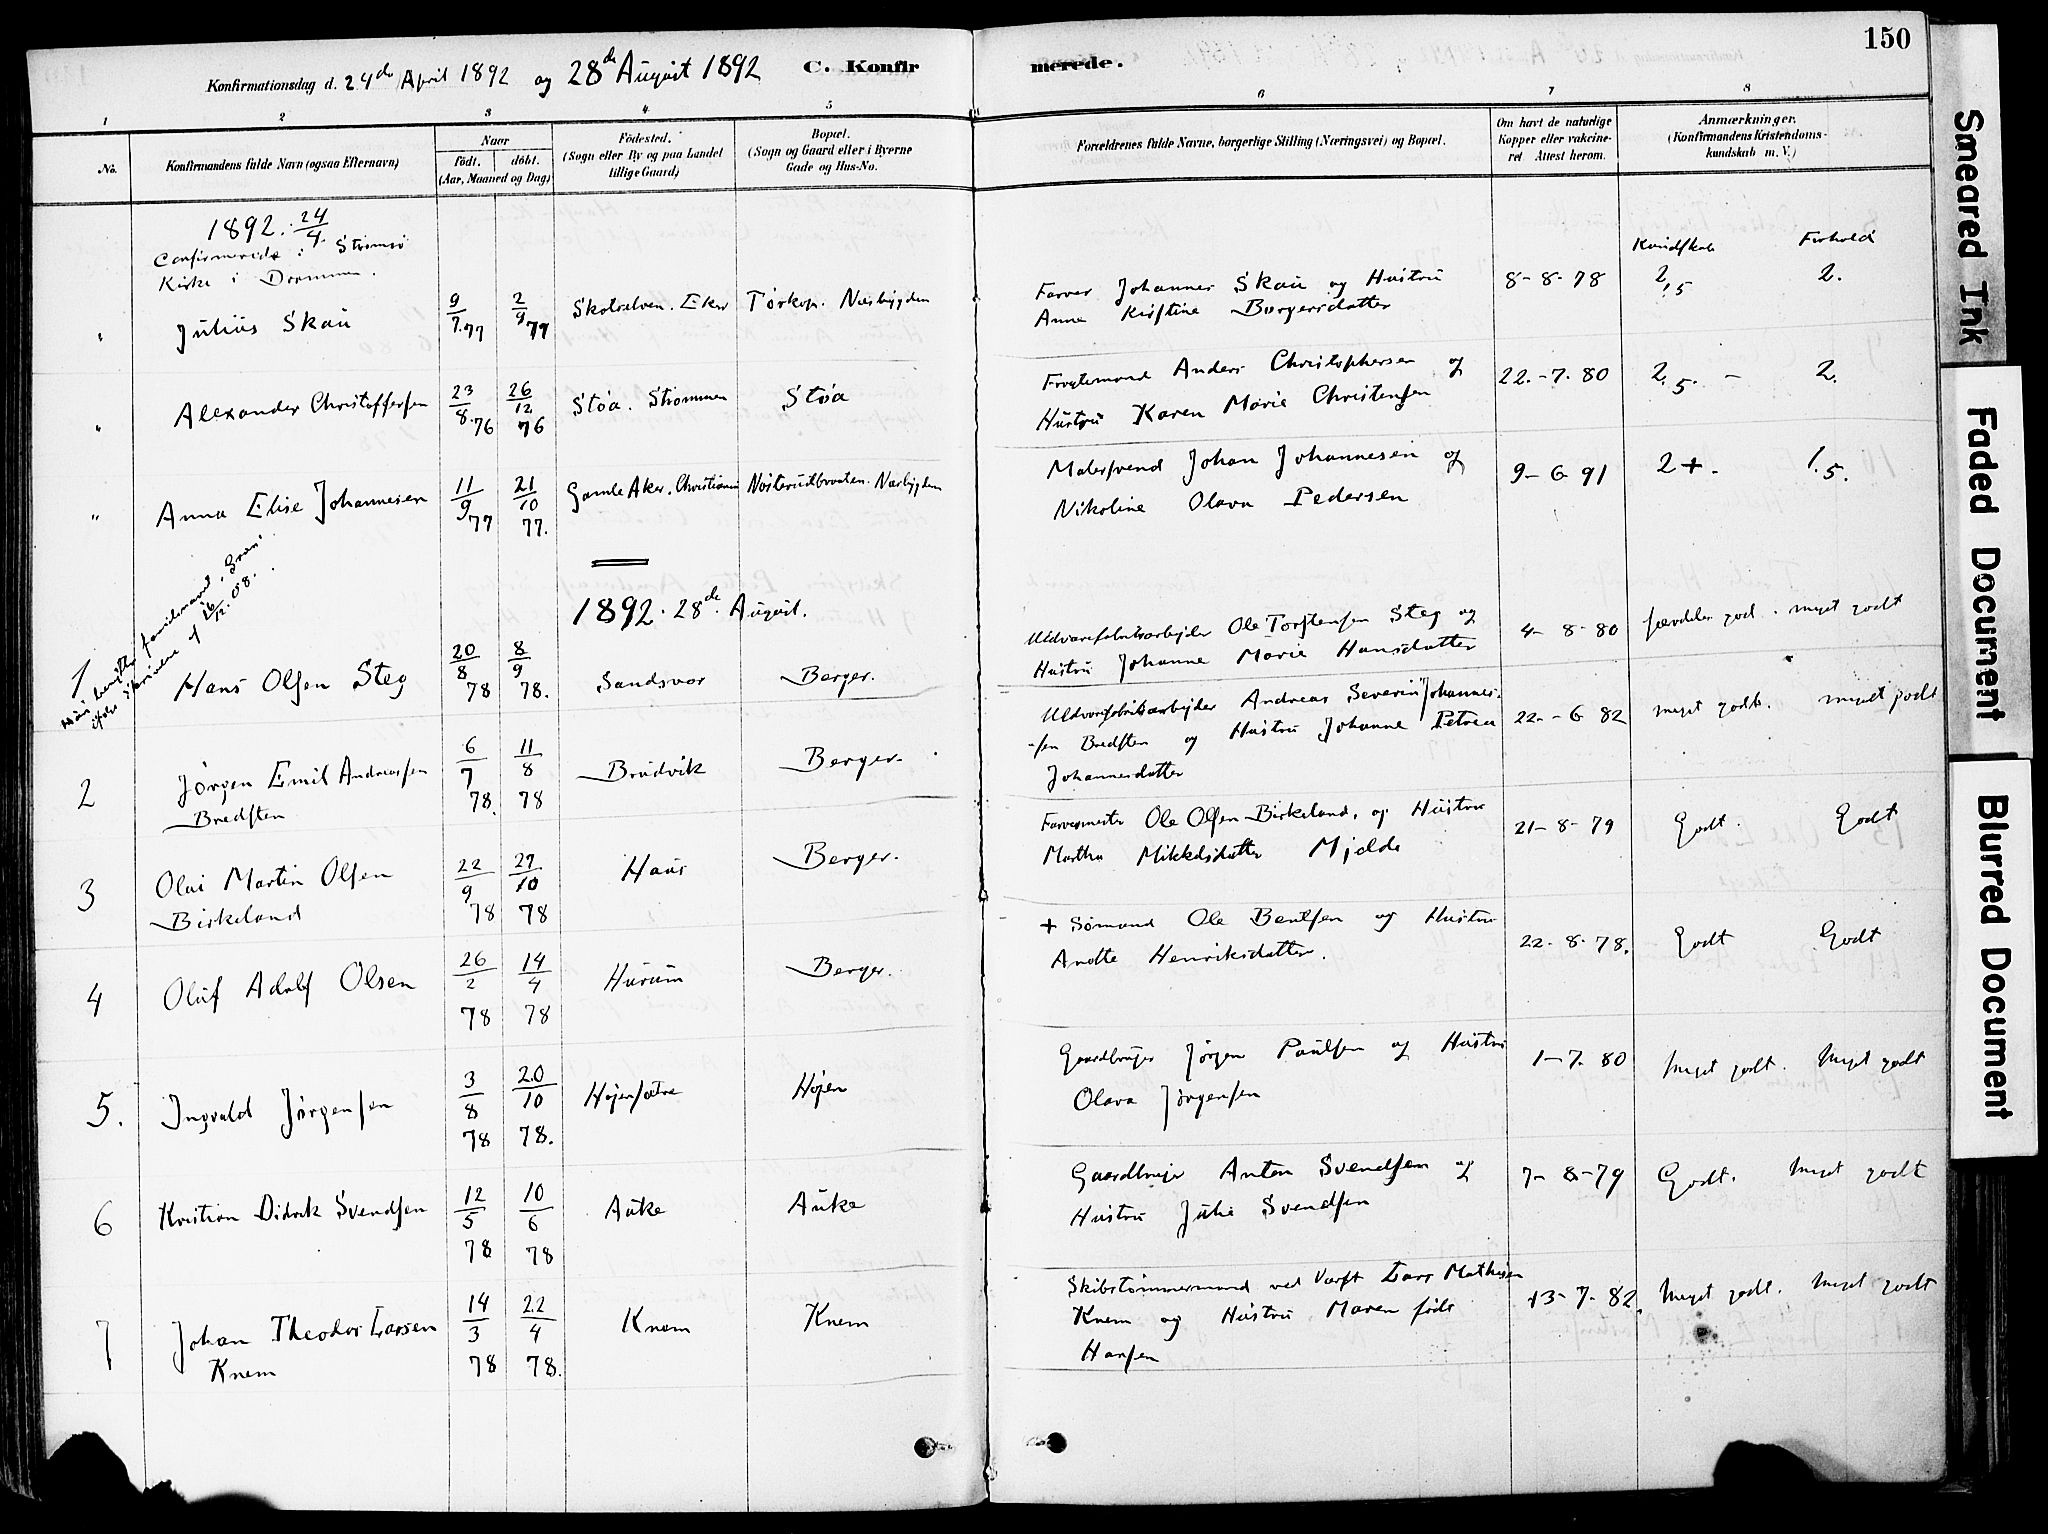 150
Konfirmationsdag d. 24de April 1892 og 28de August 1892 C. Konfirmerede.
1 2 3 4 5 6 7 8
No.
Konfirmandens fulde Navn (ogsaa Efternavn)
Naar
født. døbt.
(Aar, Maaned og Dag)
Fødested.
(Sogn eller By og paa Landet
tillige Gaard)
Bopæl.
(Sogn og Gaard eller i Byerne
Gade og Hus-No.
Forældrenes fulde Navne, borgerlige Stilling (Næringsvei) og Bopæl.
Om havt de naturlige
Kopper eller vakcine-
ret Attest herom.
Anmærkninger.
(Konfirmandens Kristendoms-
kundskab m. V.)
1892. 24/4
Confirmerede i Strømsø
Kirke i Drammen.
Kundskab Forhold
" Julius Skau 9/7.77 2/9 77 Skotselven. Eker Tørkop. Næsbygden
Farver Johannes Skau og Hustru
Anne Kristine Borgersdatter
8-8-78 2,5 2.
" Alexander Christoffersen 23/8.76 26/12 76 Støa. Strømmen Støa
Anders Christophersen og
Hustru Karen Marie Christensen
22.-7.80 2.5. - 2.
" Anna Elise Johannesen 11/9 77 21/10 77. Gamle Aker. Christiania Næsbygden
Malersvend Johan Johannesen og
Nikoline Olava Pedersen
9-6-91 2+. 1.5.
1892. 28de August.
1 Hans Olsen Steg 20/8 78 8/9 78. Sandsvær Berger.
Uldvarefabrikarbejder Ole Torstensen Steg og
Hustru Johanne Marie Hansdatter
4-8-80 særdeles godt. meget godt
2 Jørgen Emil Andreassen
Bredsten
6/7 78. 11/8 78 Brudvik Berger.
Uldvarefabrikarbejder Andreas Severin Johannes-
sen Bredsten og Hustru Johanne Petrea
Johannesdatter
22.-6 82 meget godt. meget godt
3 Olai Martin Olsen
Birkeland
22/9 78 27/10 78 Haus Berger.
Farvermester Ole Olsen Birkeland, og Hustru
Martha Mikkelsdatter Mjelde
21-8-79 Godt. Godt
4 Oluf Adolf Olsen 26/2 78 14/4 78 Hurum Berger.
+ Sømand Ole Bentsen og Hustru
Anette Henriksdatter.
22-8-78. Godt Godt
5. Ingvald Jørgensen 3/8 78 20/10 78. Højensætre Højen
Gaardbruger Jørgen Paulsen og Hustru
Olava Jørgensen
1-7.80 Meget godt. Meget godt
6 Kristian Didrik Svendsen 12/5 78 10/6 78 Auke Auke
Gaardbruger Anton Svendsen og
Hustru Julie Svendsen
7-8-79 Godt. Meget godt
7 Johan Theodor Larsen
Knem
14/3 78 22/4 78. Knem Knem
Skibstømmermand ved Værft Lars Mathisen
Knem og Hustru Maren født
Hansen
13-7-82. Meget godt. Meget godt
Smeared Ink
Faded Document
Blurred Document